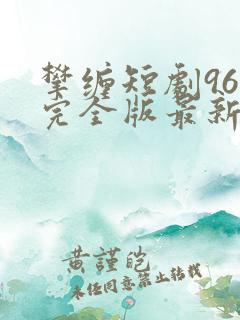 攀缠短剧96
完全版最新
黄谨皑
未经同意禁止转载